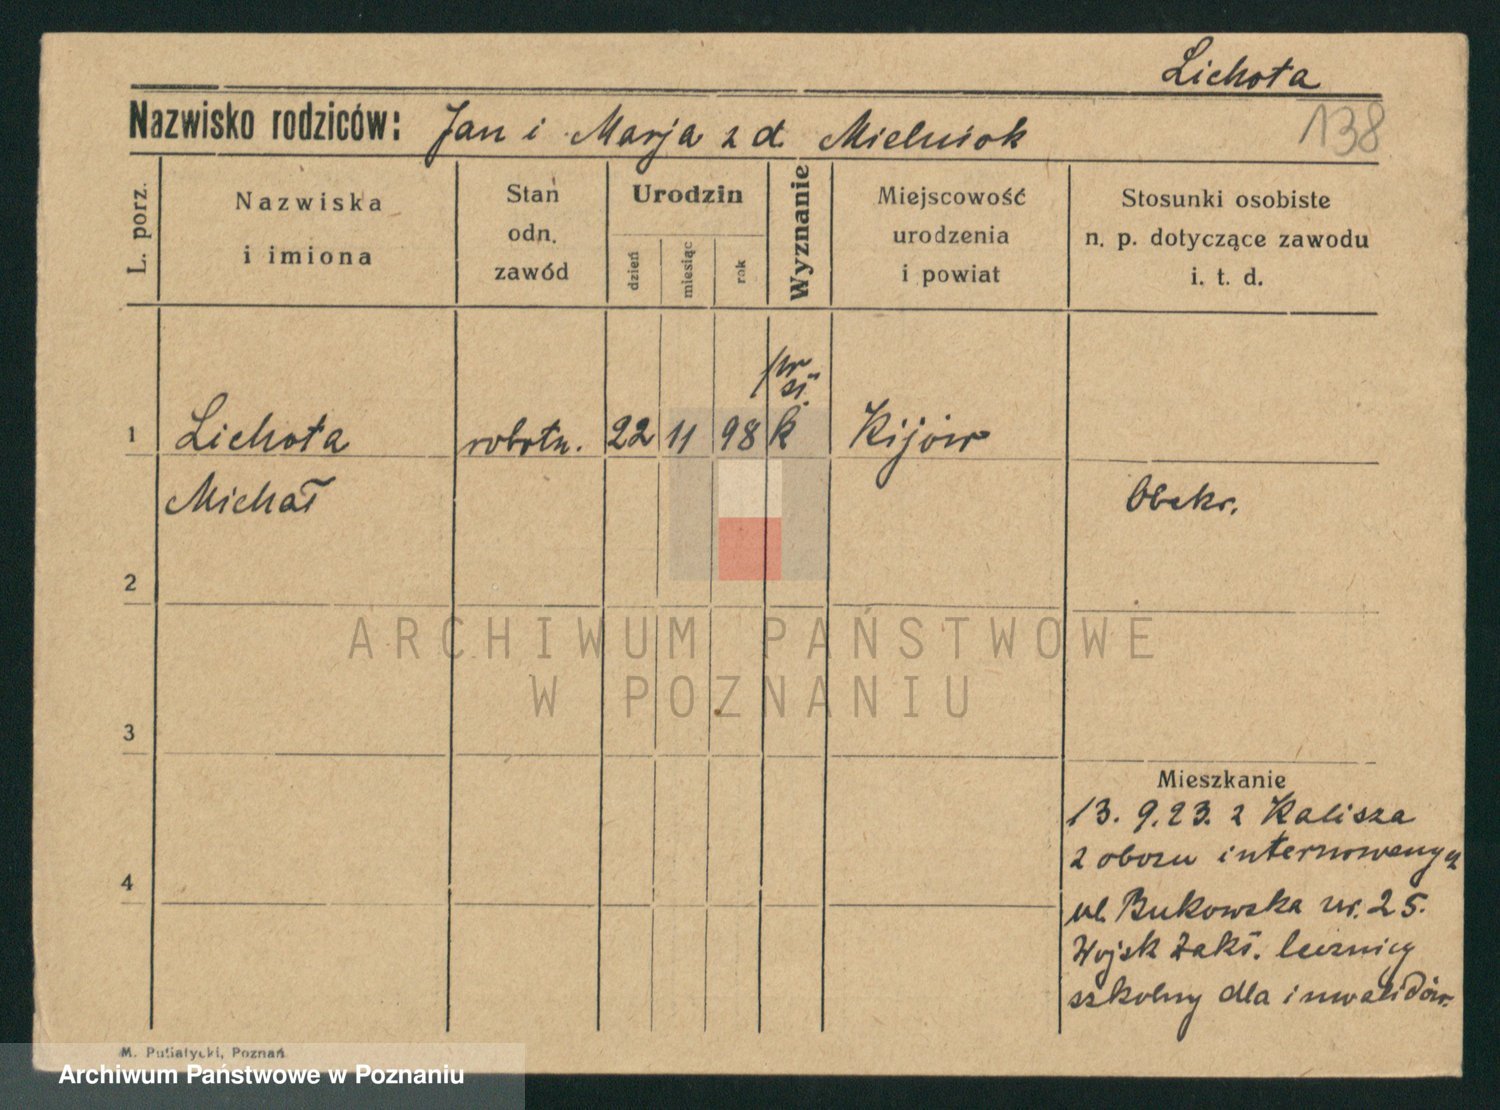 Lichota
138
Nazwisko rodziców: Jan i Marja z d. Mielniok
L. porz.
Nazwiska
i imiona
Stan
odn.
zawód
Urodzin
dzień
miesiąc
rok
Wyznanie
Miejscowość
urodzenia
i powiat
Stosunki osobiste
n. p. dotyczące zawodu
i. t. d.
1
Lichota
robotn.
22
11
98
k
Kijów
Michał
Obekr.
2
ARCHIWUM PAŃSTWOWE
W POZNANIU
3
Mieszkanie
13. 9. 23. z Kalisza
z obozu internowanych
4
ul. Bukowska nr. 25.
Wojsk Zakł. leczniczy
szkolny dla inwalidów.
M. Putiatycki, Poznań
Archiwum Państwowe w Poznaniu